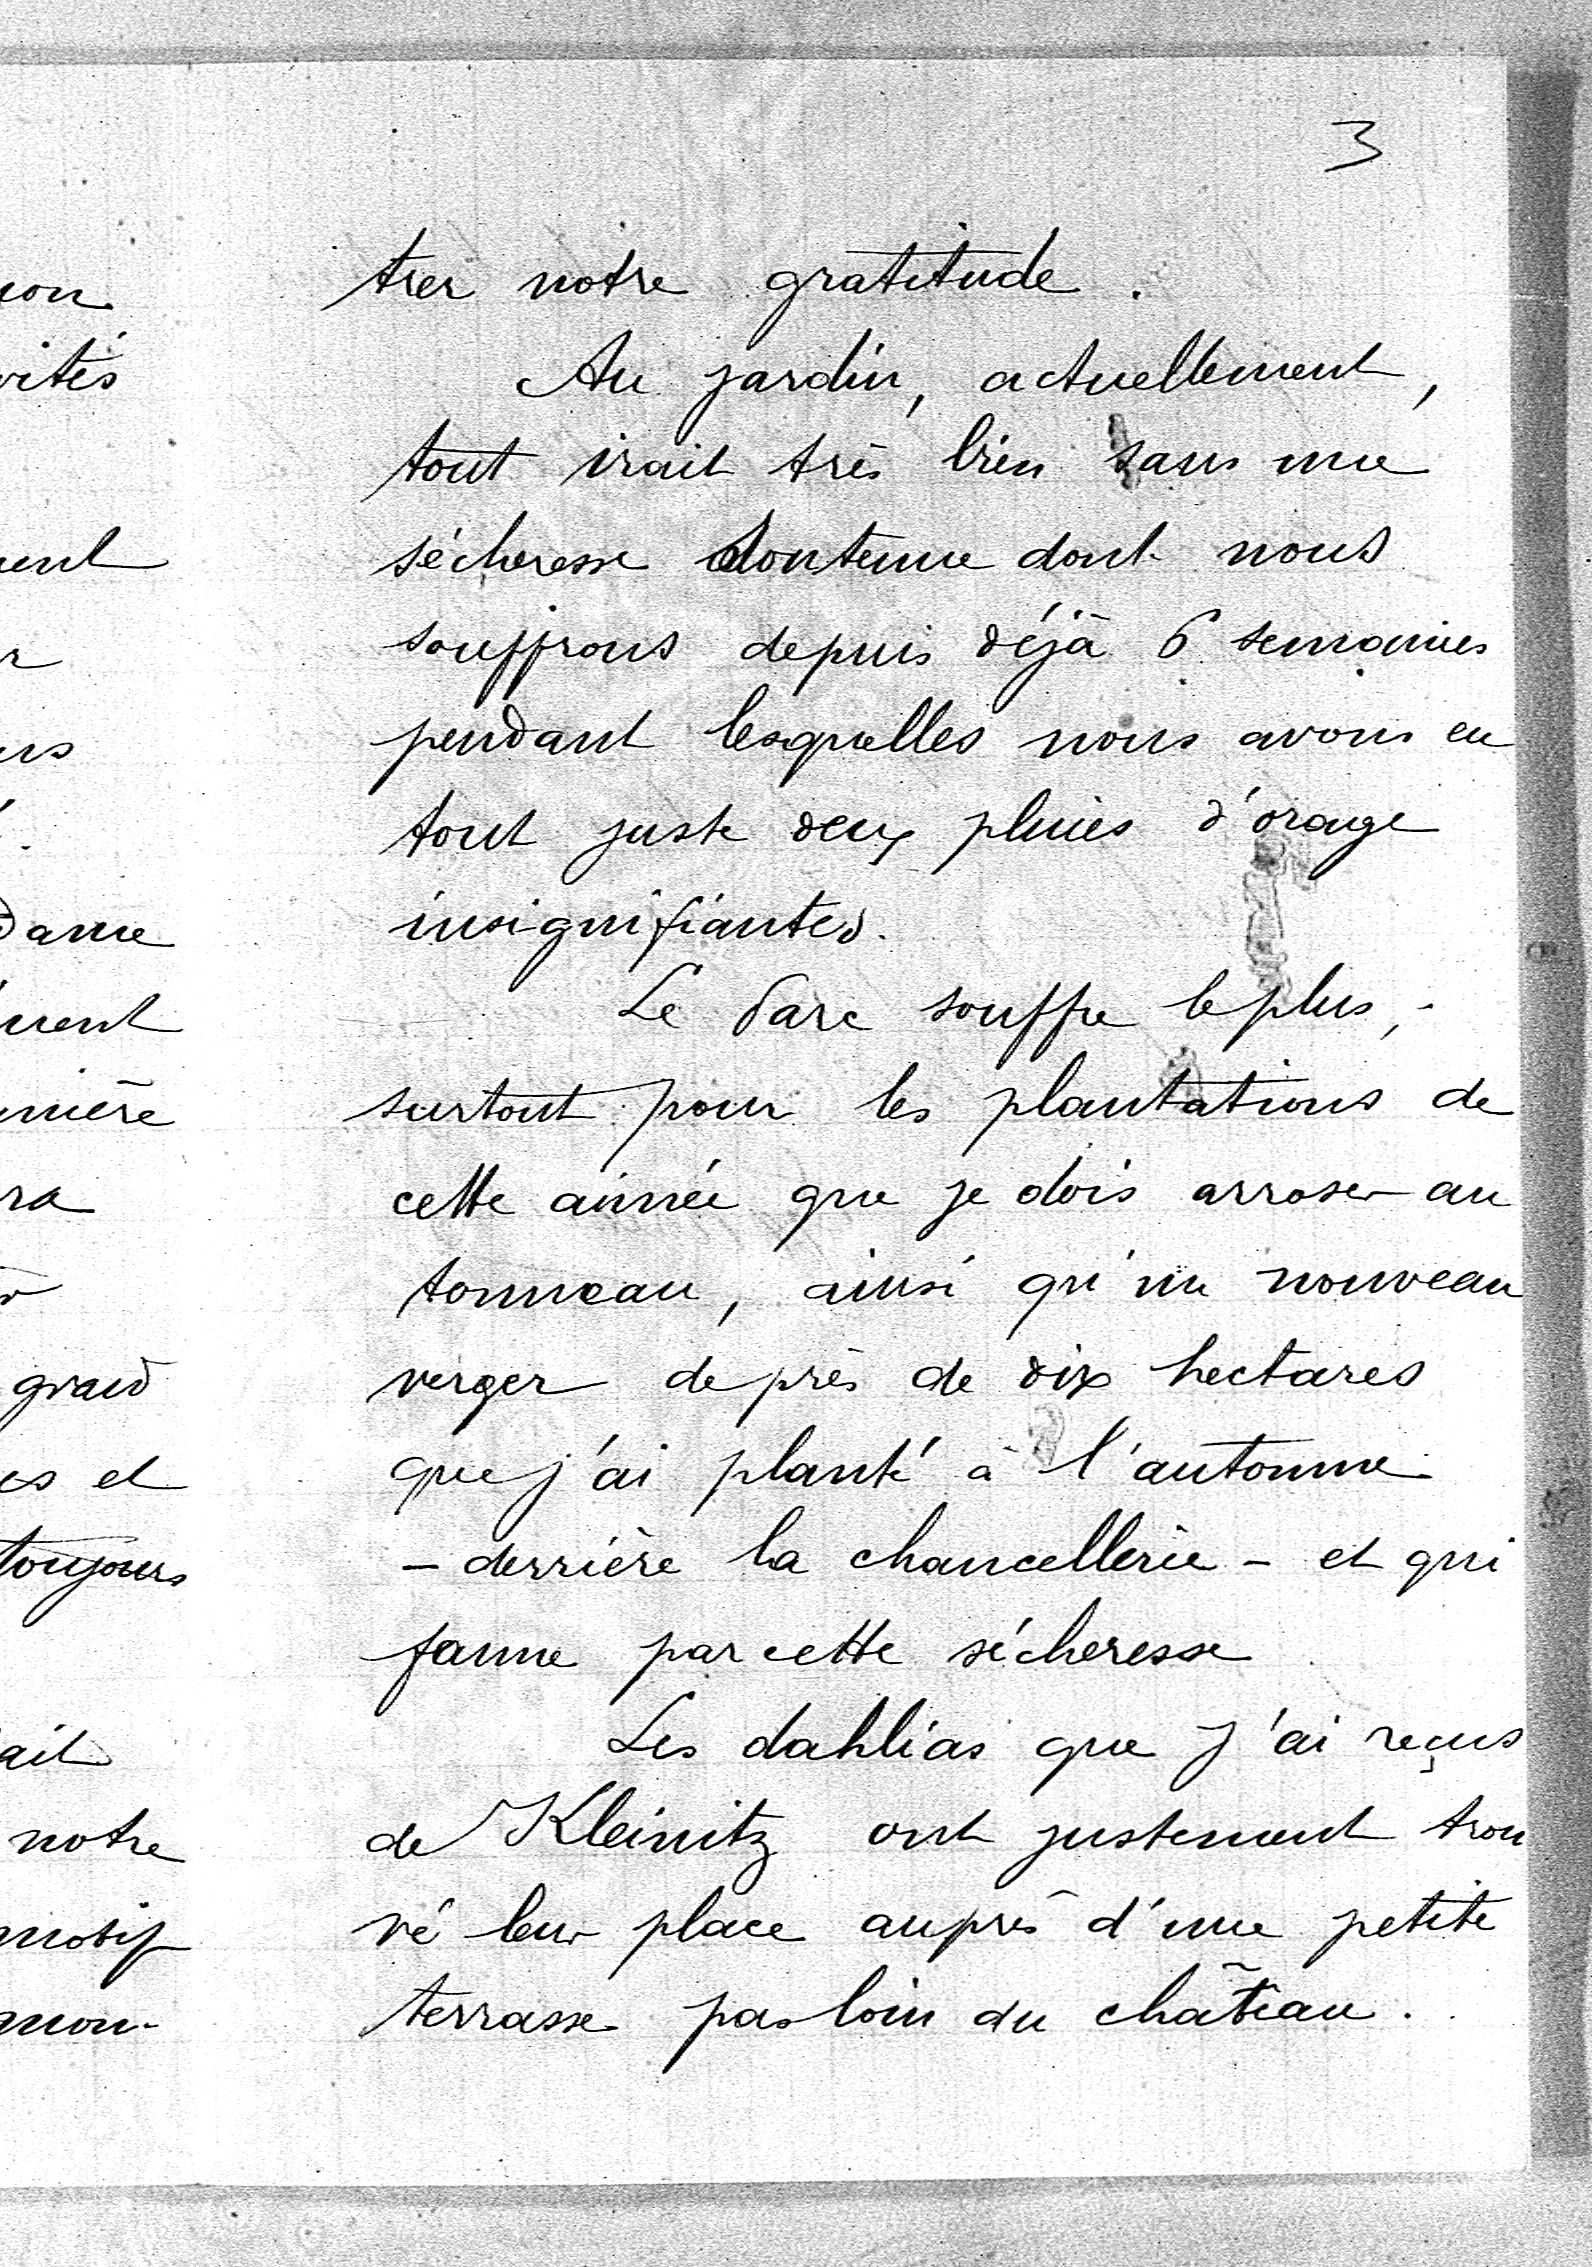 3
trer notre gratitude.
Au jardin, actuellement,
tout irait très bien sans une
sécheresse soutenue dont nous
souffrons depuis déjà 6 semaines
pendant lesquelles nous avons eu
tout juste deux pluies d'orage
insignifiantes.
Le Parc souffre le plus,
surtout pour les plantations de
cette année que je dois arroser au
tonneau, ainsi qu'un nouveau
verger de près de dix hectares
que j'ai planté à l'automne
- derrière la chancellerie - et qui
fanne par cette sécheresse
Les dahlias que j'ai reçus
de Kleinitz ont justement trou
vé leur place auprès d'une petite
terrasse pas loin du château.
ent
ame
grand
es et
toujours
ait
notre
motif
mon-